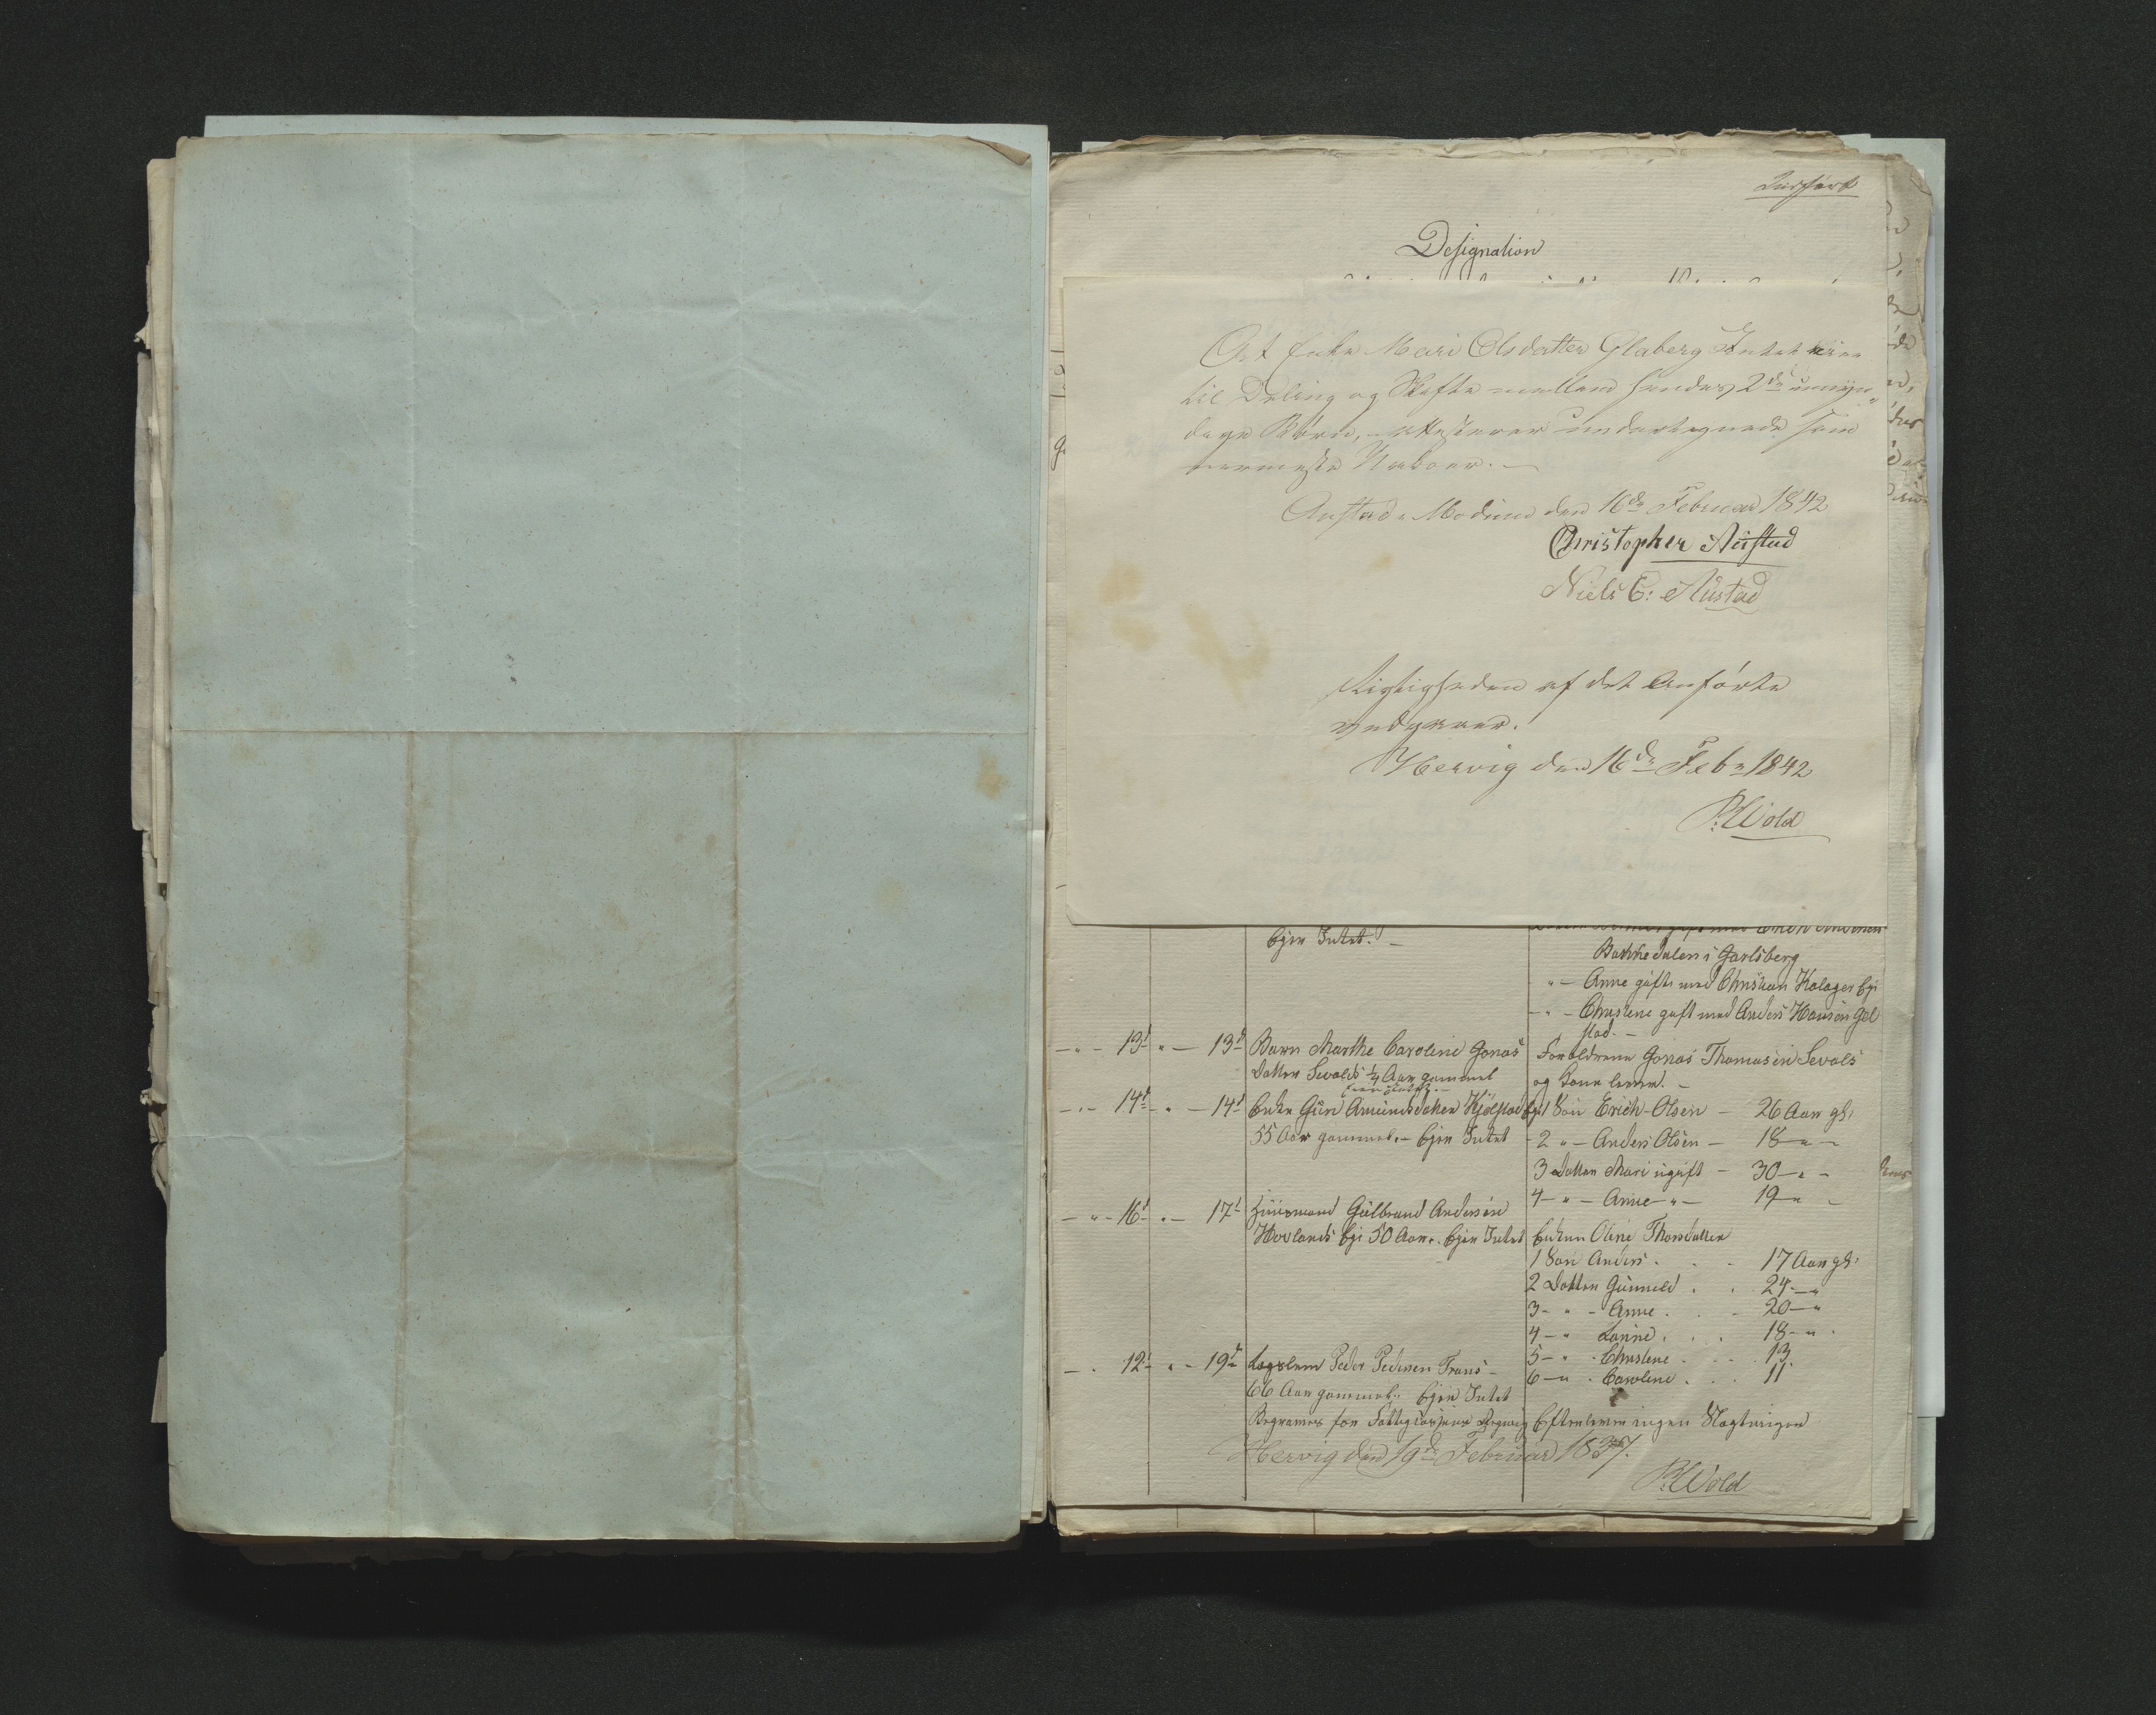 Indført
Designation
At Enke Mari Olsdatter Glaberg Intet eier
til Deling og Skifte mellem hendes 2de umyn„
dige Børn, attesterer undertegnede som
nærmeste Naboer. —
Austad i Modum den 16de Februar 1842
Christopher Austad
Niels C: Austad
Rigtigheden af det Anførte
vedgaaes.
Hervig den 16de Febr 1842
P. Wold
Ejer Intet. —
i Garlsberg
" — Anne gift med Christian Kalager Eje
— " — Christene gift med Anders Hansen Gul
stad. —
— " — 13d " — 13d Barn Marthe Caroline Jonas
Datter Sevals 1/4 Aar gammel
Forældrene Jonas Thomasen Sevals
og Kone lever. —
— " — 14d — " — 14d Enke Guri Amundsdatter Kjølstad Eje
55 Aar gammel. — Ejer Intet
1 Søn Erich Olsen — 26 Aar gl.
2 " — Anders Olsen — 18 — " —
3 Datter Mari ugift — 30 — " —
4 — " — Anne — " — 19 — " —
— " — 16d " — 17d Huusmand Gulbrand Andersen
Hovlands Eje 50 Aar. Ejer Intet
Enken Oline Thorsdatter
1 Søn Anders . . . 17 Aar gl.
2 Datter Gunnild . . 24 — "
3 — " — Anne . . 20 — "
4 — " Lorine . . . 18 — " .
5 — " . Christene . . . 13
6 — " . Caroline . . . 11
— . 12d " — 19d Lægslem Peder Pedersen —
66 Aar gammel. Ejer Intet
Begraves for Fattigkassens Regning
Efterlever ingen Slægtninger
Hervig den 19de Februar 1837.
P. Wold